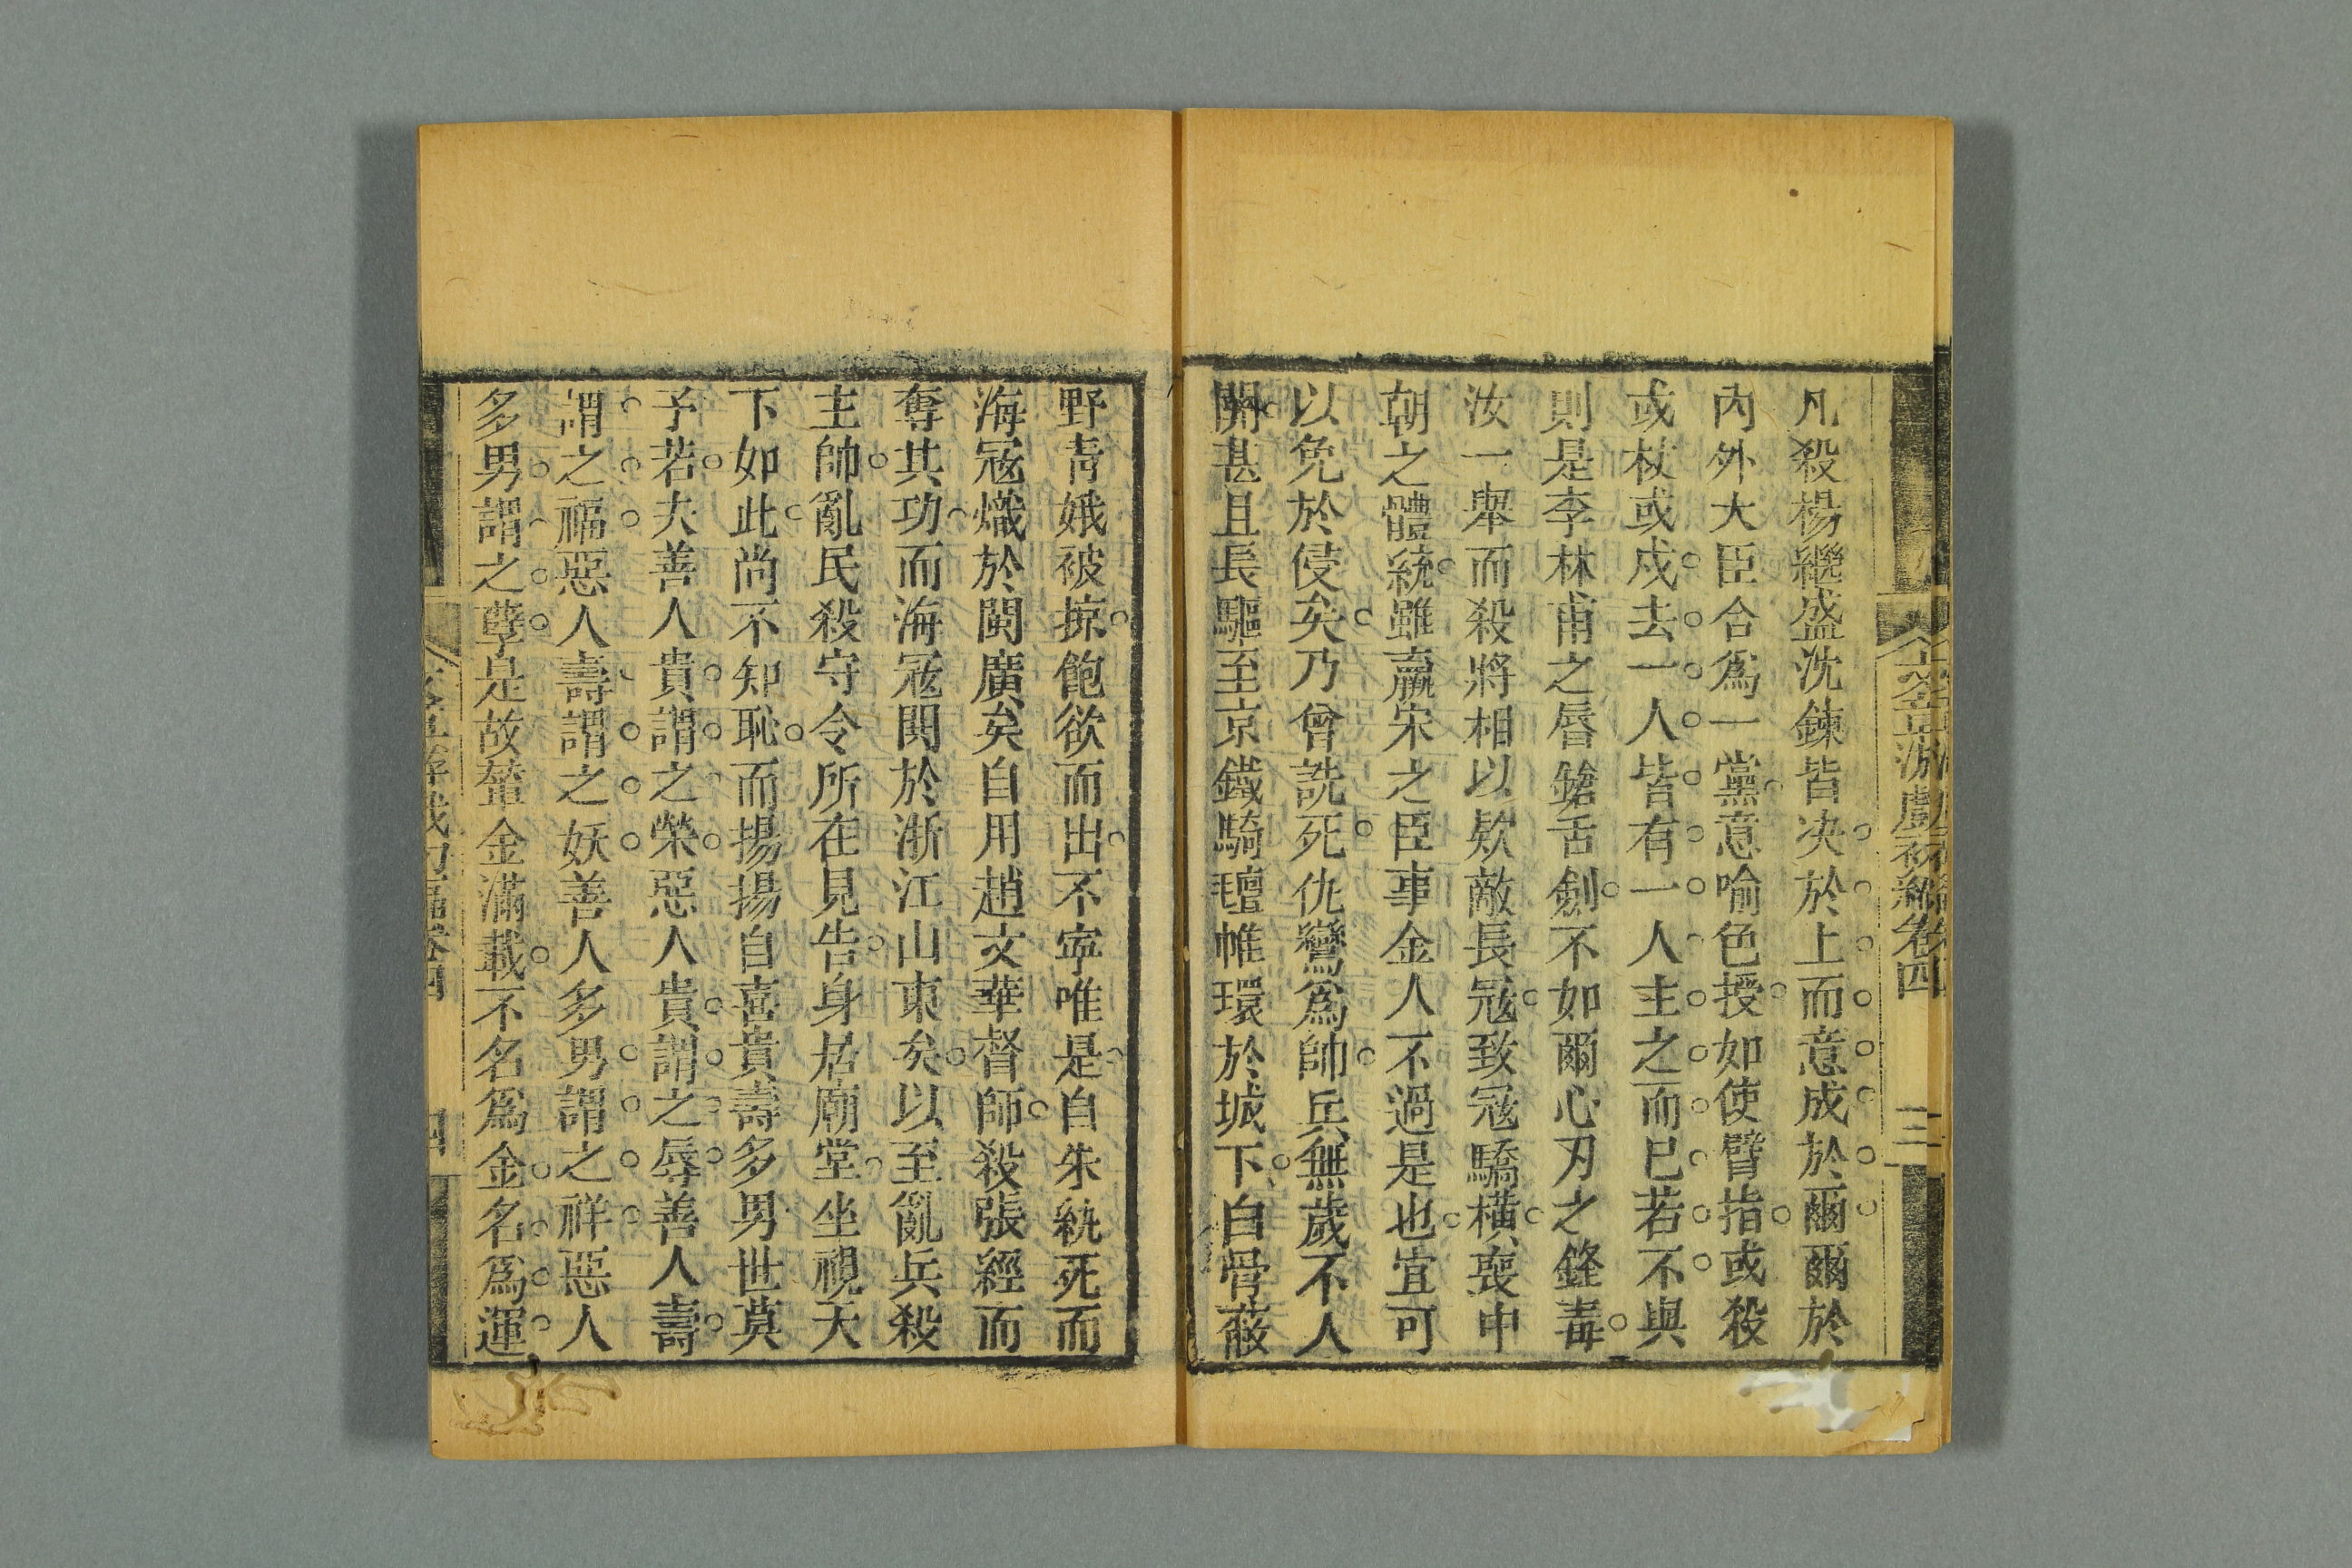 凡殺楊繼盛沈鍊皆决於上而意成於爾爾於
内外大臣合爲一黨意喻色授如使臂指或殺
或杖或戍去一人皆有一人主之而已若不與
則是李林甫之唇鎗舌劍不如爾心刃之鋒毒
汝一舉而殺將相以欵敵長寇致寇驕橫喪中
朝之體統雖嬴宋之臣事金人不過是也宜可
以免於侵矣乃曾詵死仇鸞爲帥兵無歲不人
關甚且長驅至京鐵騎氊帷環於城下白骨蔽
野青娥被掠飽欲而出不寜唯是自朱紈死而
海寇熾於閩廣矣自用趙文華督師殺張經而
奪其功而海寇閧於浙江山東矣以至亂兵殺
主帥亂民殺守令所在見告身居廟堂坐視天
下如此尚不知恥而揚揚自喜貴壽多男世莫
予若夫善人貴謂之榮惡人貴謂之辱善人壽
謂之福惡人壽謂之妖善人多男謂之祥惡人
多男謂之孽是故輦金滿載不名爲金名爲運
卷四
三
四